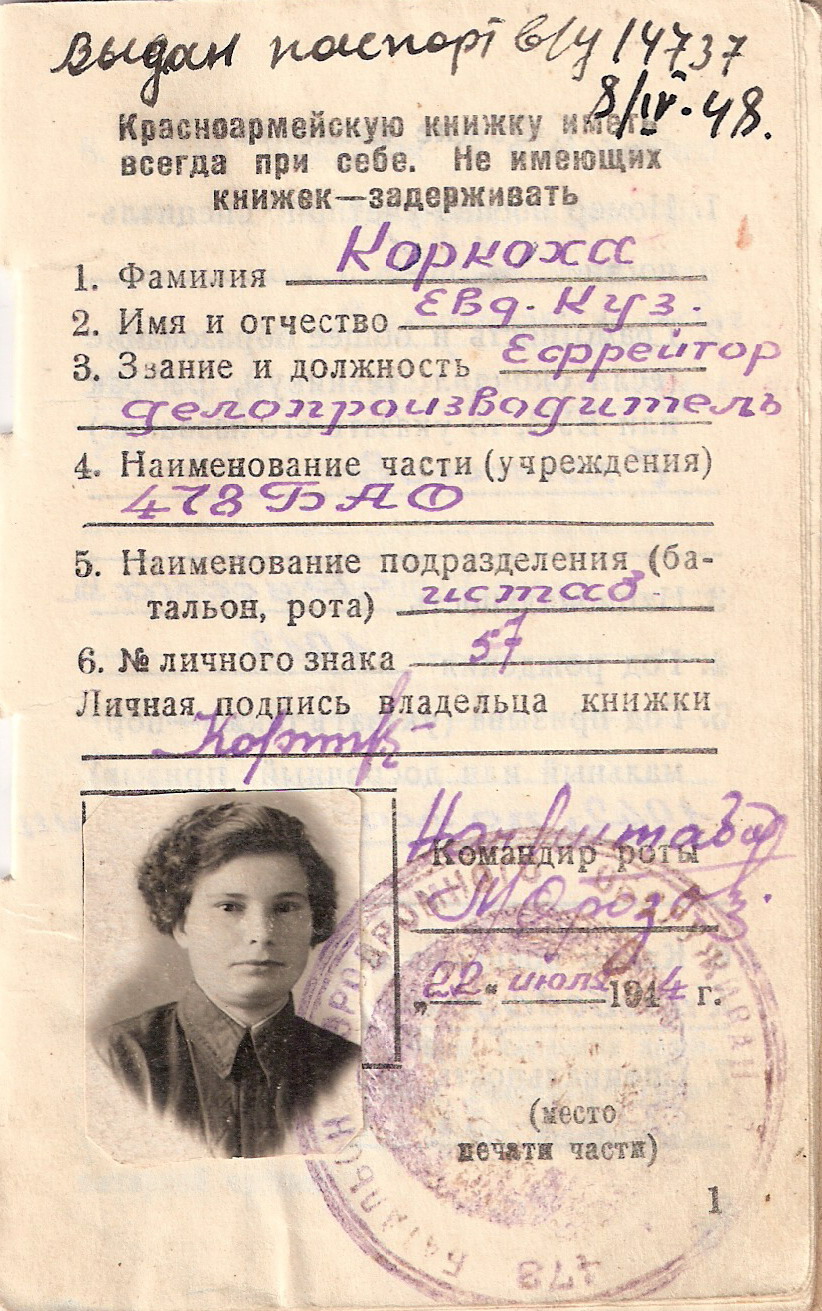 Выдан паспорт в/у 14737
8/IV-48.
Красноармейскую книжку иметь
всегда при себе. Не имеющих
книжек—задерживать
1. Фамилия Корноха
2. Имя и отчество Евд. Куз.
3. Звание и должность Ефрейтор
делопроизводитель
4. Наименование части (учреждения)
478 БАО
5. Наименование подразделения (ба-
тальон, рота) штаб
6. № личного знака 57
Личная подпись владельца книжки
Командир роты
Морозов
„22“ июля 1944 г.
(место
печати части)
1
478 БАТАЛЬОН АЭРОДРОМНОГО ОБСЛУЖИВАН